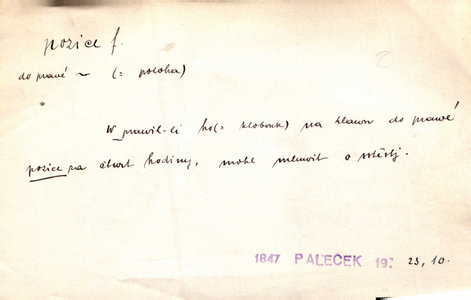 pozice f.
do pravé ~ (= poloha)
Wprawil-li ho(= klobouk) na hlawu do prawé
pozice za čtwrt hodiny, mohl mluwit o
1847 PALEČEK 19. 23, 10.